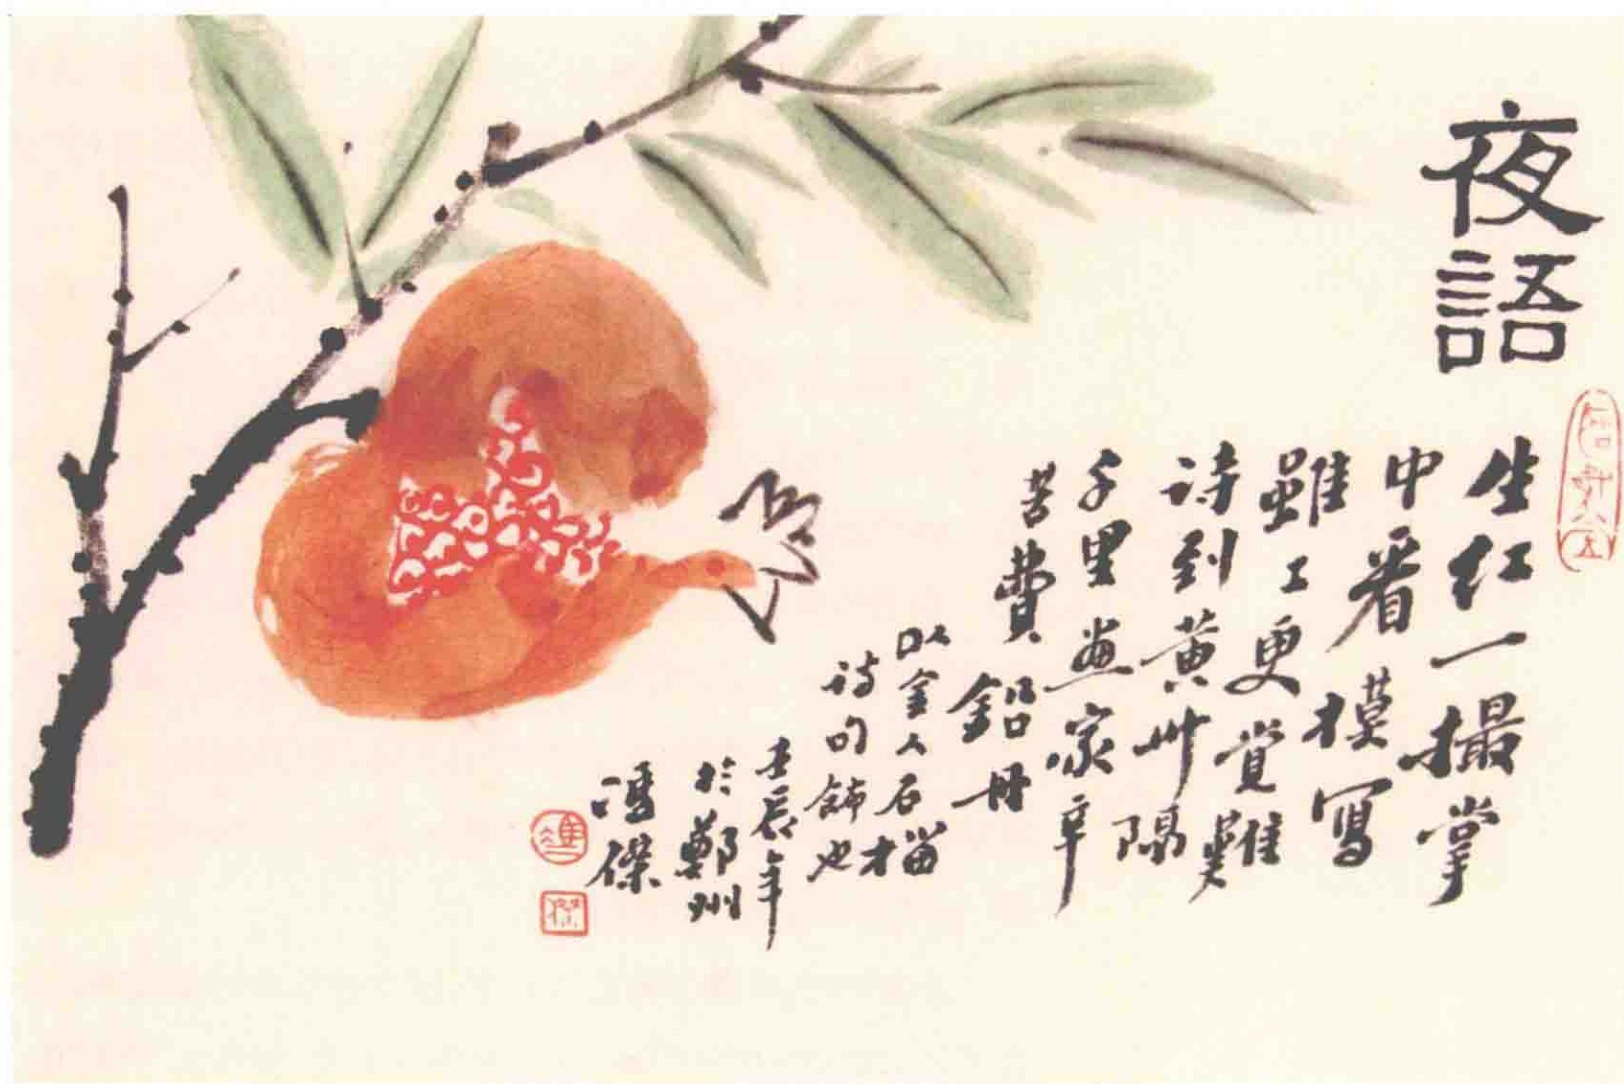 夜語
生红一撮掌
中看模寫
雖工更覺難
诗到黄州隔
千里畫家辛
苦費鉛丹
以金人石榴
诗句飾也
壬辰年
於鄭州
馮傑
馮
傑